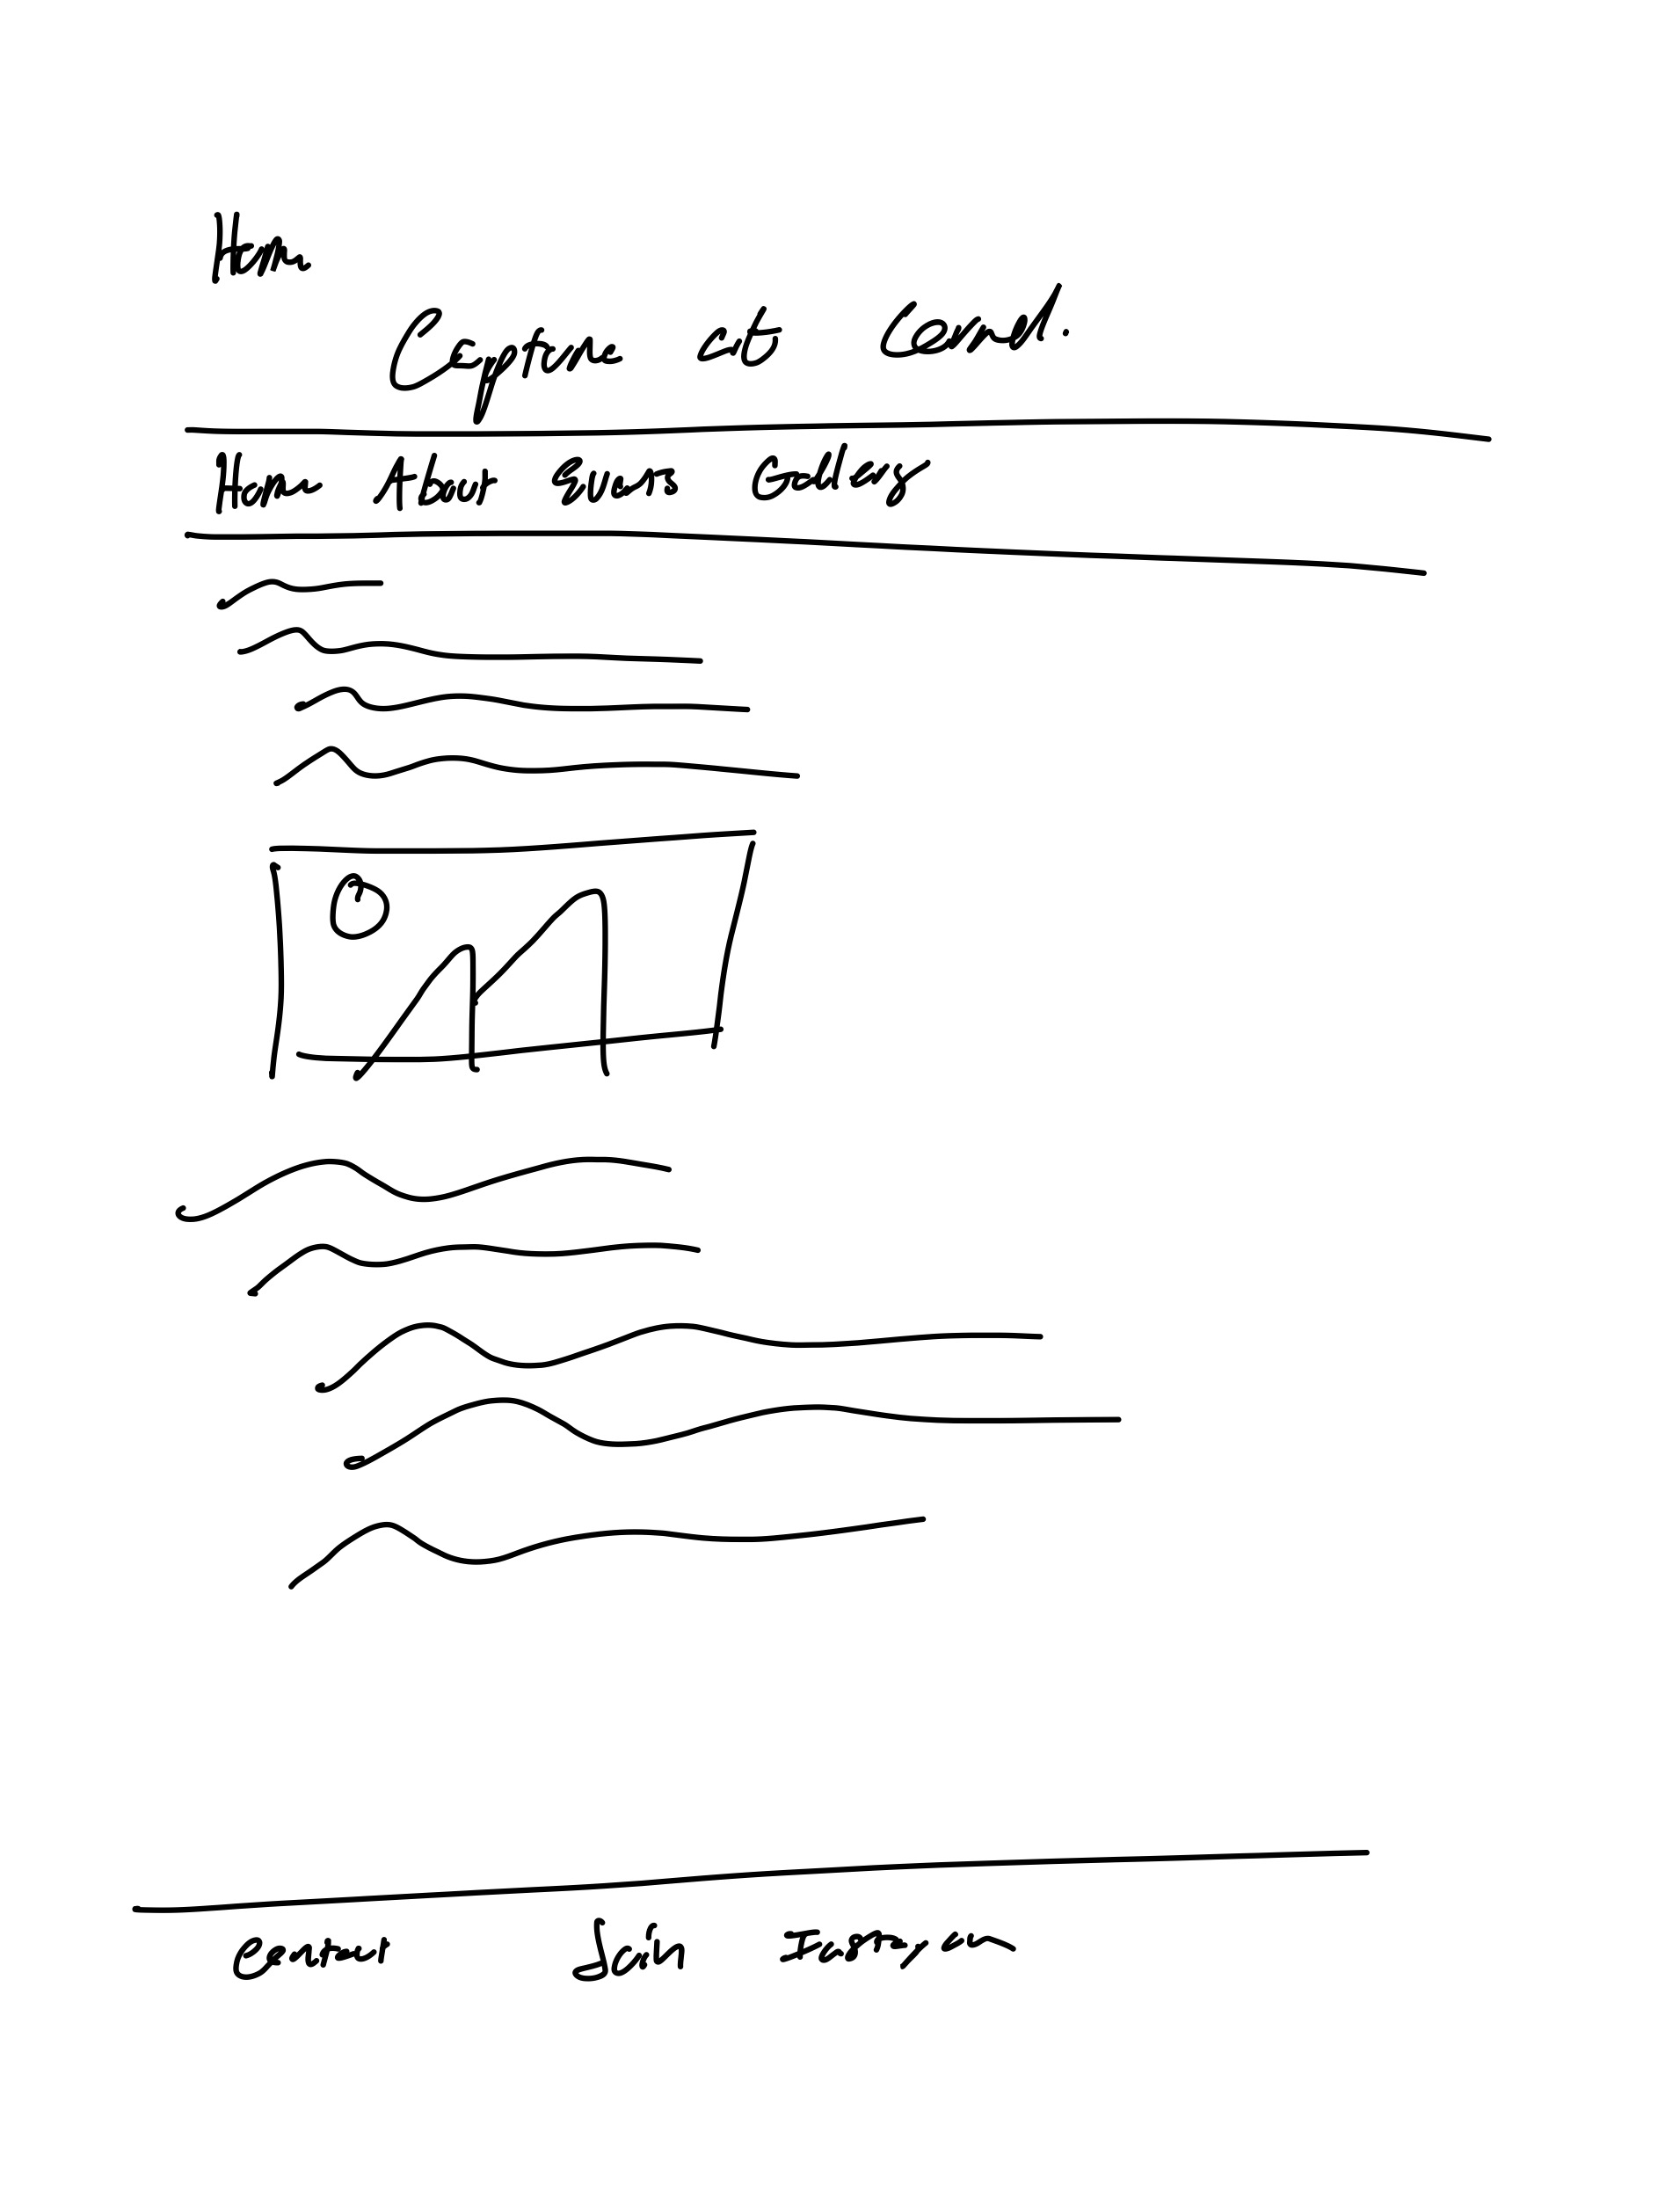 Home
Capture at Cornell.
Home About Events Gallery
Contact Join